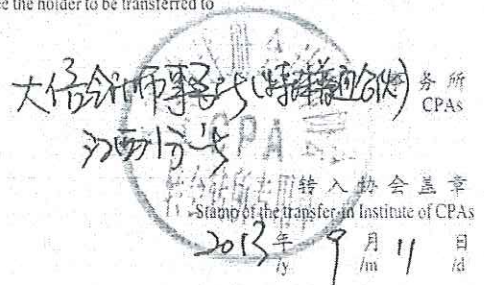 ee the holder to be transferred to
大信会计师事务所(特殊普通合伙) 务所
CPAs
江西分所
CPA
转入协会盖章
Stamp of the transfer-in Institute of CPAs
2013 年 9 月 11 日
/y /m /d